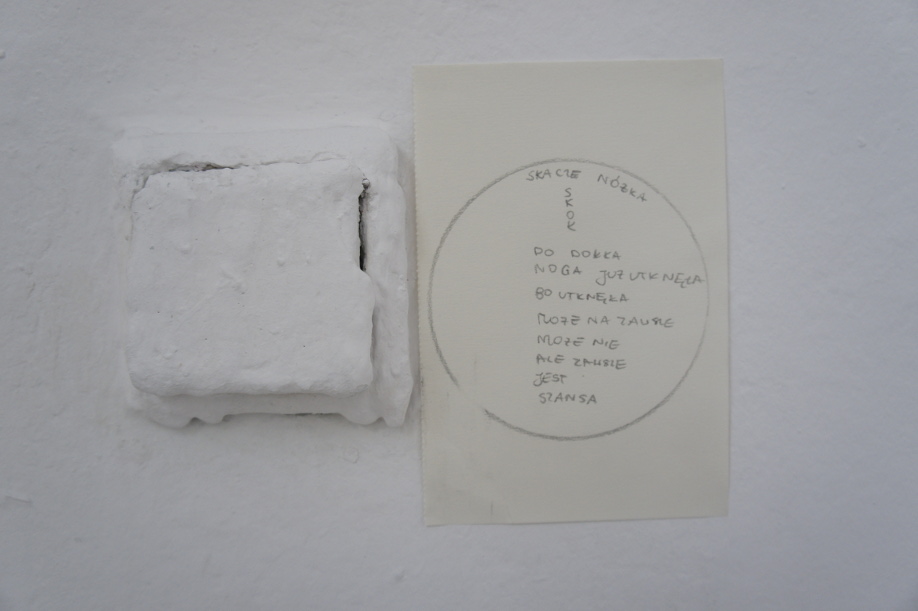 SKACZE NÓŻKA
S
K
O
K
DO DOŁKA
NOGA JUŻ UTKNĘŁA
BO UTKNĘŁA
MOŻE NA ZAWSZE
MOŻE NIE
ALE ZAWSZE
JEST
SZANSA